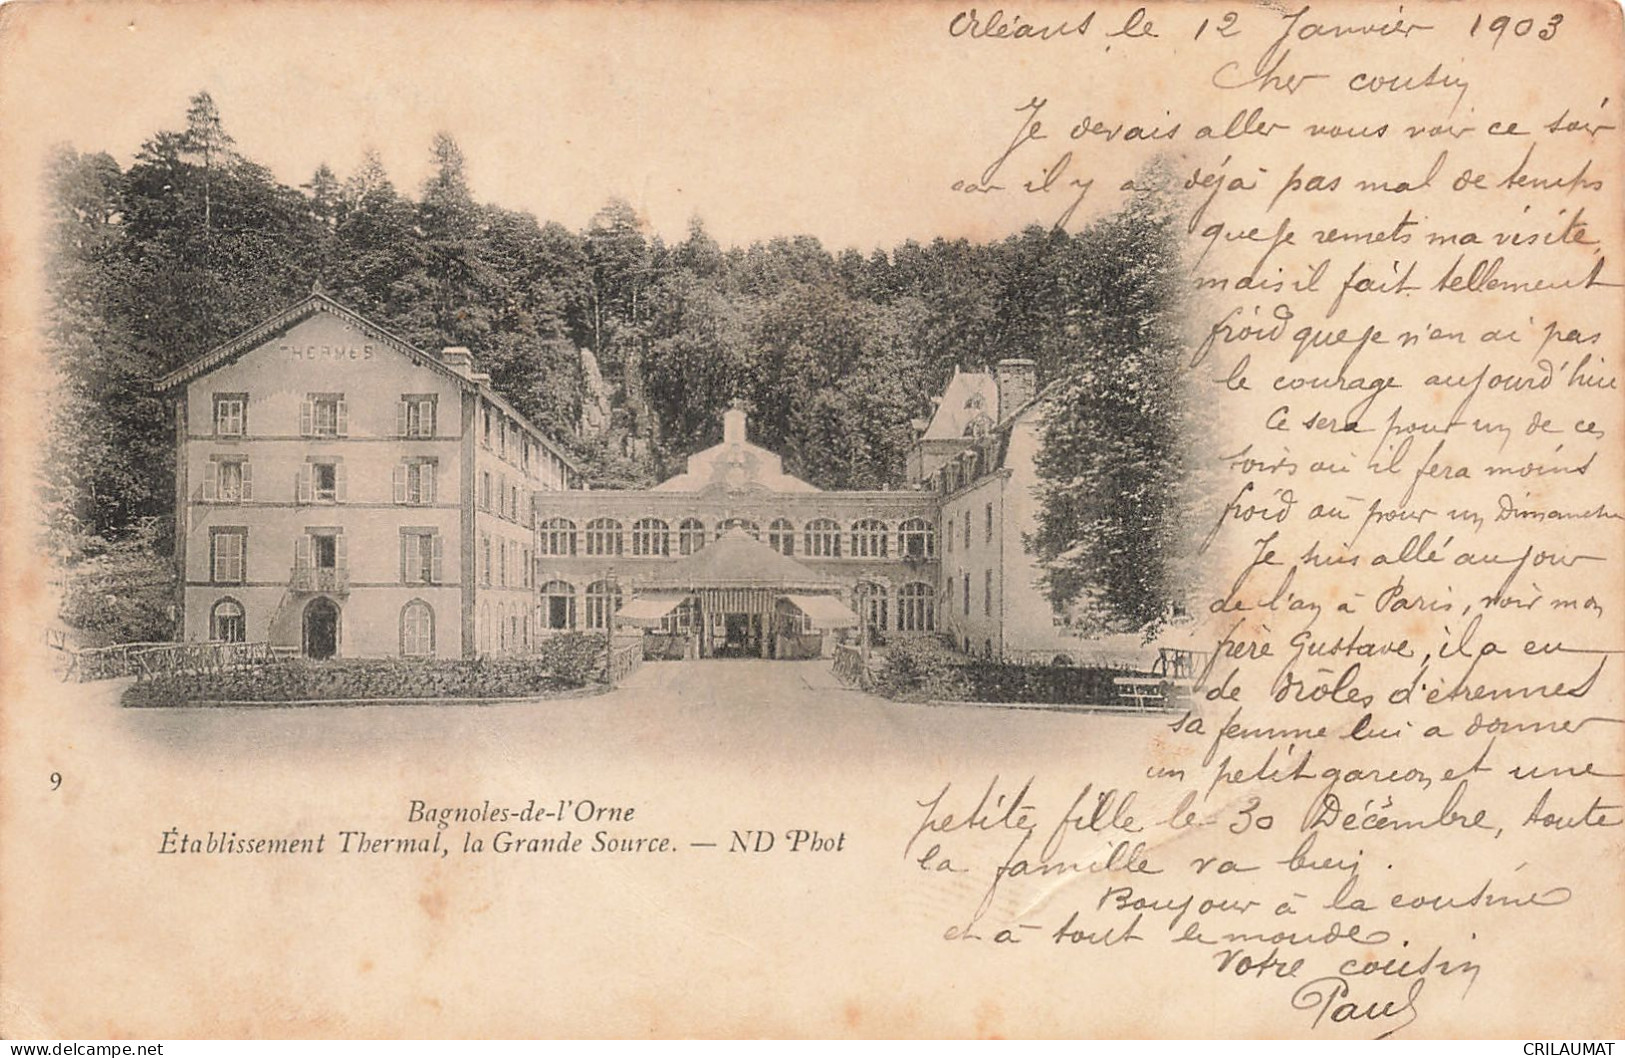 Orléans le 12 Janvier 1903
Cher cousin
Je devais aller vous voir ce soir
car il y a déjà pas mal de temps
que je remets ma visite,
mais il fait tellement
froid que je n'en ai pas
le courage aujourd'hui
Ce sera pour un de ces
soirs où il fera moins
froid où pour un Dimanche
Je suis allé au jour
de l'an à Paris, voir mon
frère Gustave, il a eu
de drôles d'étrennes
sa femme lui a donner
un petit garcon et une
petite fille le 30 Décembre, toute
la famille va bien.
Bonjour à la cousine
et à tout le monde.
Votre cousin
Paul
THERMES
9
Bagnoles-de-l'Orne
Établissement Thermal, la Grande Source. — ND Phot
CRILAUMAT